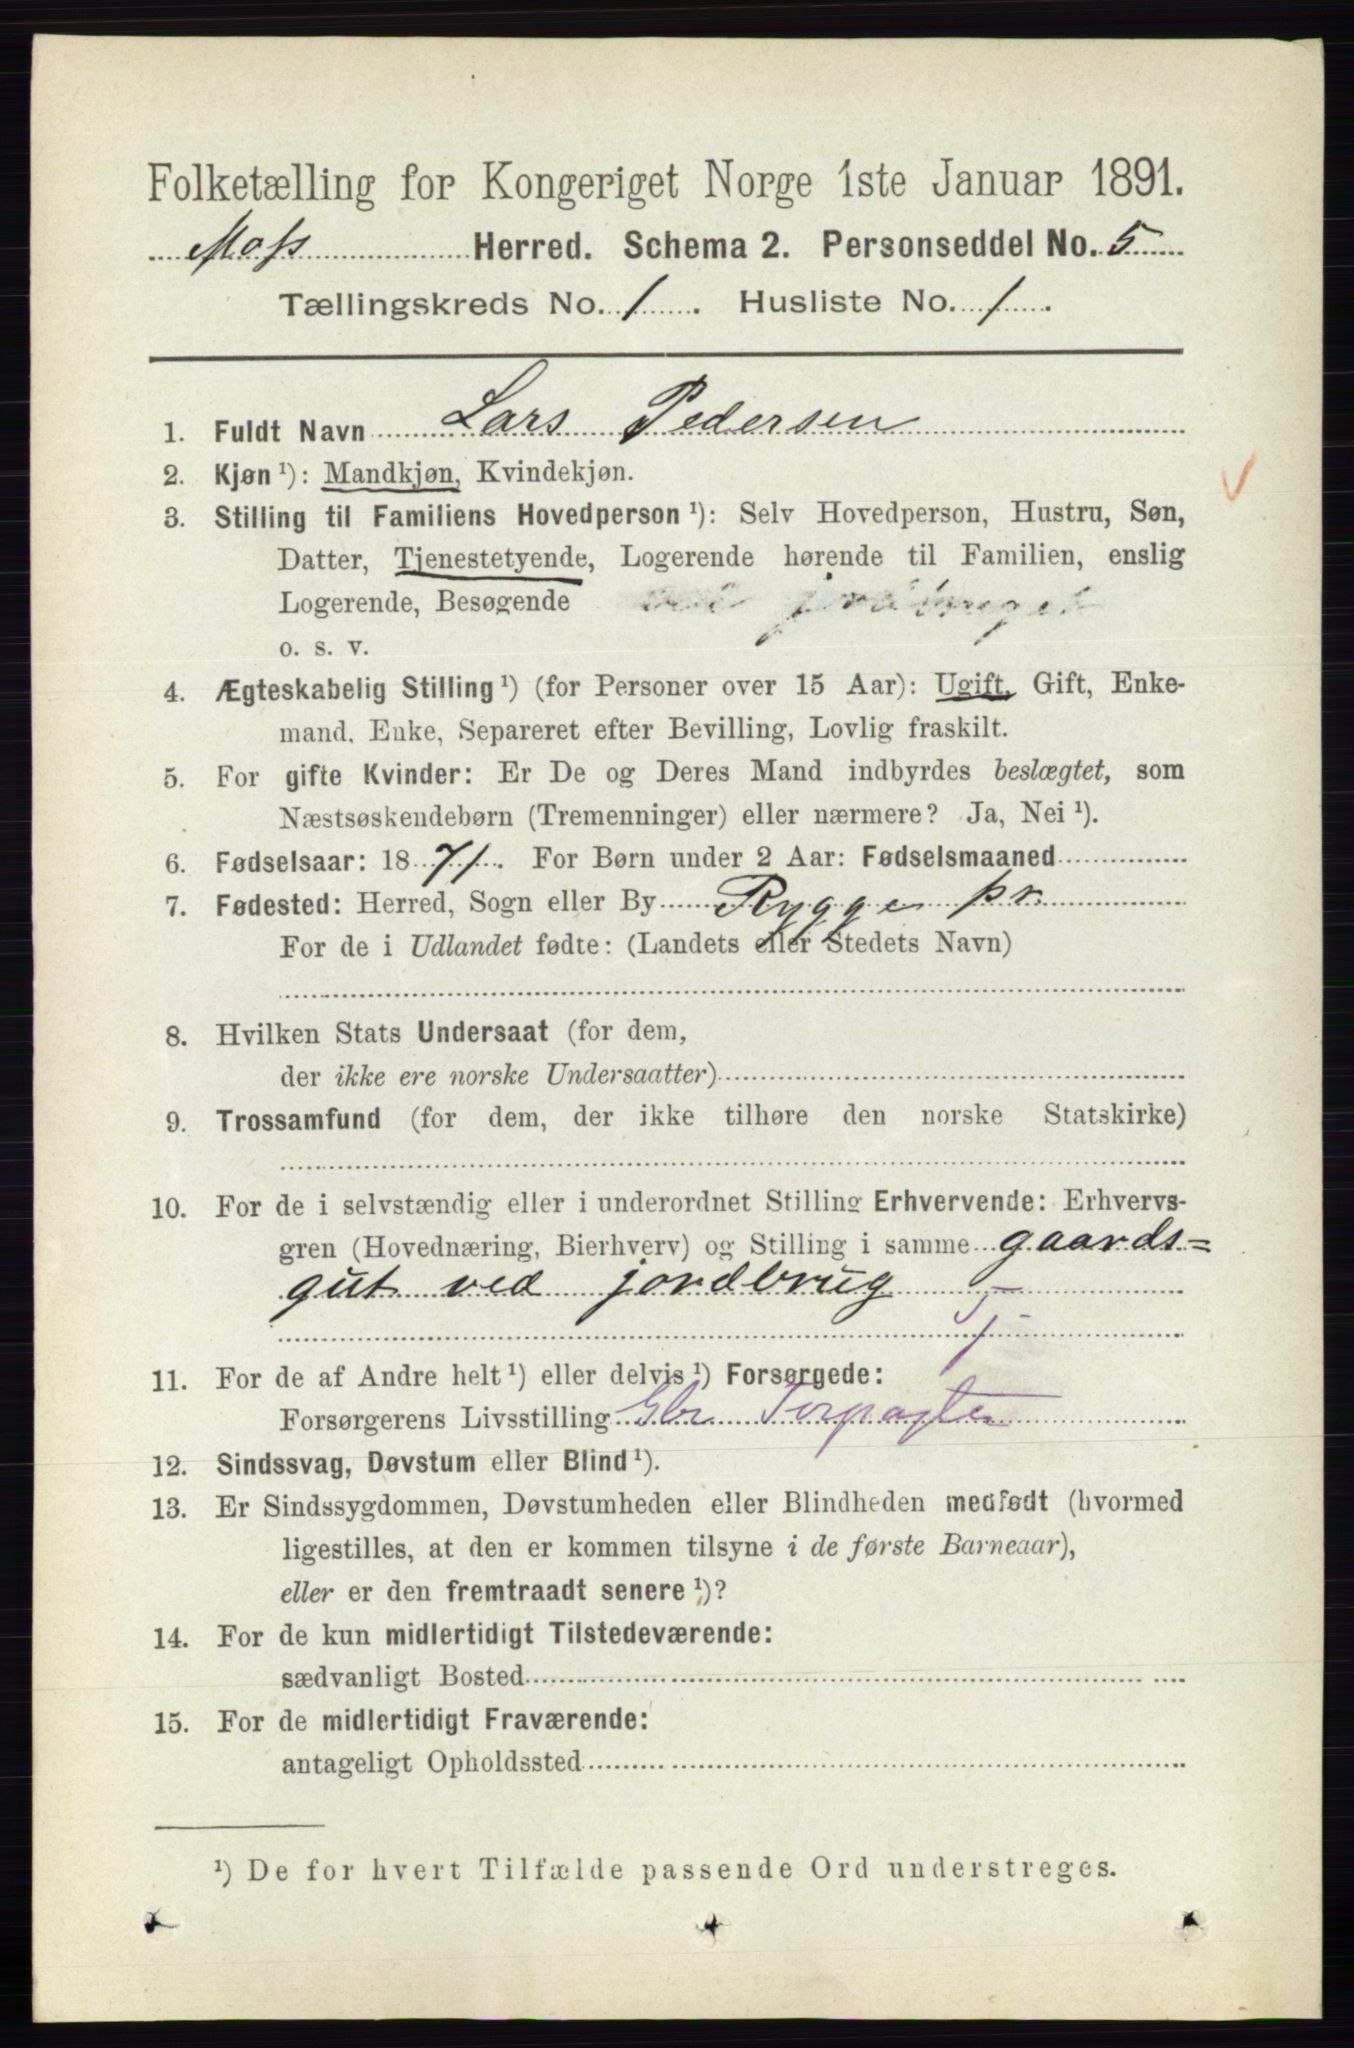 Folketælling for Kongeriget Norge 1ste Januar 1891.
Moss Herred. Schema 2. Personseddel No. 5
Tællingskreds No. 1. Husliste No. 1.
1. Fuldt Navn Lars Pedersen
2. Kjøn ¹): Mandkjøn, Kvindekjøn.
3. Stilling til Familiens Hovedperson ¹): Selv Hovedperson, Hustru, Søn,
Datter, Tjenestetyende, Logerende hørende til Familien, enslig
Logerende, Besøgende
o. s. v.
4. Ægteskabelig Stilling ¹) (for Personer over 15 Aar): Ugift, Gift, Enke-
mand, Enke, Separeret efter Bevilling, Lovlig fraskilt.
5. For gifte Kvinder: Er De og Deres Mand indbyrdes beslægtet, som
Næstsøskendebørn (Tremenninger) eller nærmere? Ja, Nei ¹).
6. Fødselsaar: 1871. For Børn under 2 Aar: Fødselsmaaned
7. Fødested: Herred, Sogn eller By Rygge pr.
For de i Udlandet fødte: (Landets eller Stedets Navn)
8. Hvilken Stats Undersaat (for dem,
der ikke ere norske Undersaatter)
9. Trossamfund (for dem, der ikke tilhøre den norske Statskirke)
10. For de i selvstændig eller i underordnet Stilling Erhvervende: Erhvervs-
gren (Hovednæring, Bierhverv) og Stilling i samme gaards=
gut ved jordbrug
11. For de af Andre helt ¹) eller delvis ¹) Forsørgede:
Forsørgerens Livsstilling Gbr
12. Sindssvag, Døvstum eller Blind ¹).
13. Er Sindssygdommen, Døvstumheden eller Blindheden medfødt (hvormed
ligestilles, at den er kommen tilsyne i de første Barneaar),
eller er den fremtraadt senere ¹)?
14. For de kun midlertidigt Tilstedeværende:
sædvanligt Bosted
15. For de midlertidigt Fraværende:
antageligt Opholdssted
¹) De for hvert Tilfælde passende Ord understreges.